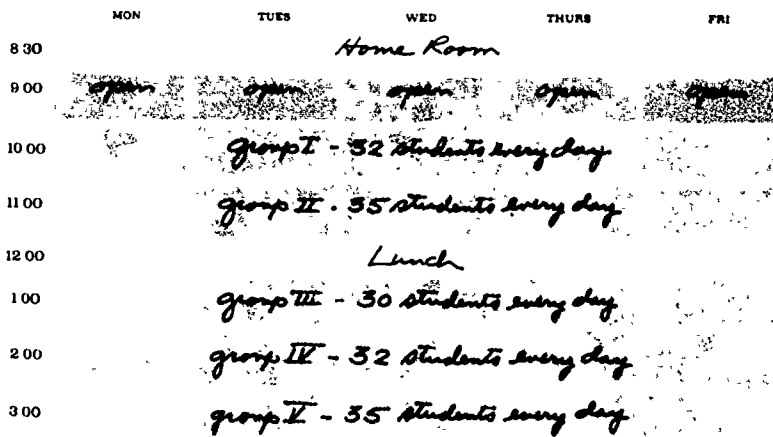 MON TUES WED THURS FRI
8 30 Home Room
9 00 open open open open open
10 00 group I - 32 students every day
11 00 group II - 35 students every day
12 00 Lunch
1 00 group III - 30 students every day
2 00 group IV - 32 students every day
3 00 group V - 35 students every day